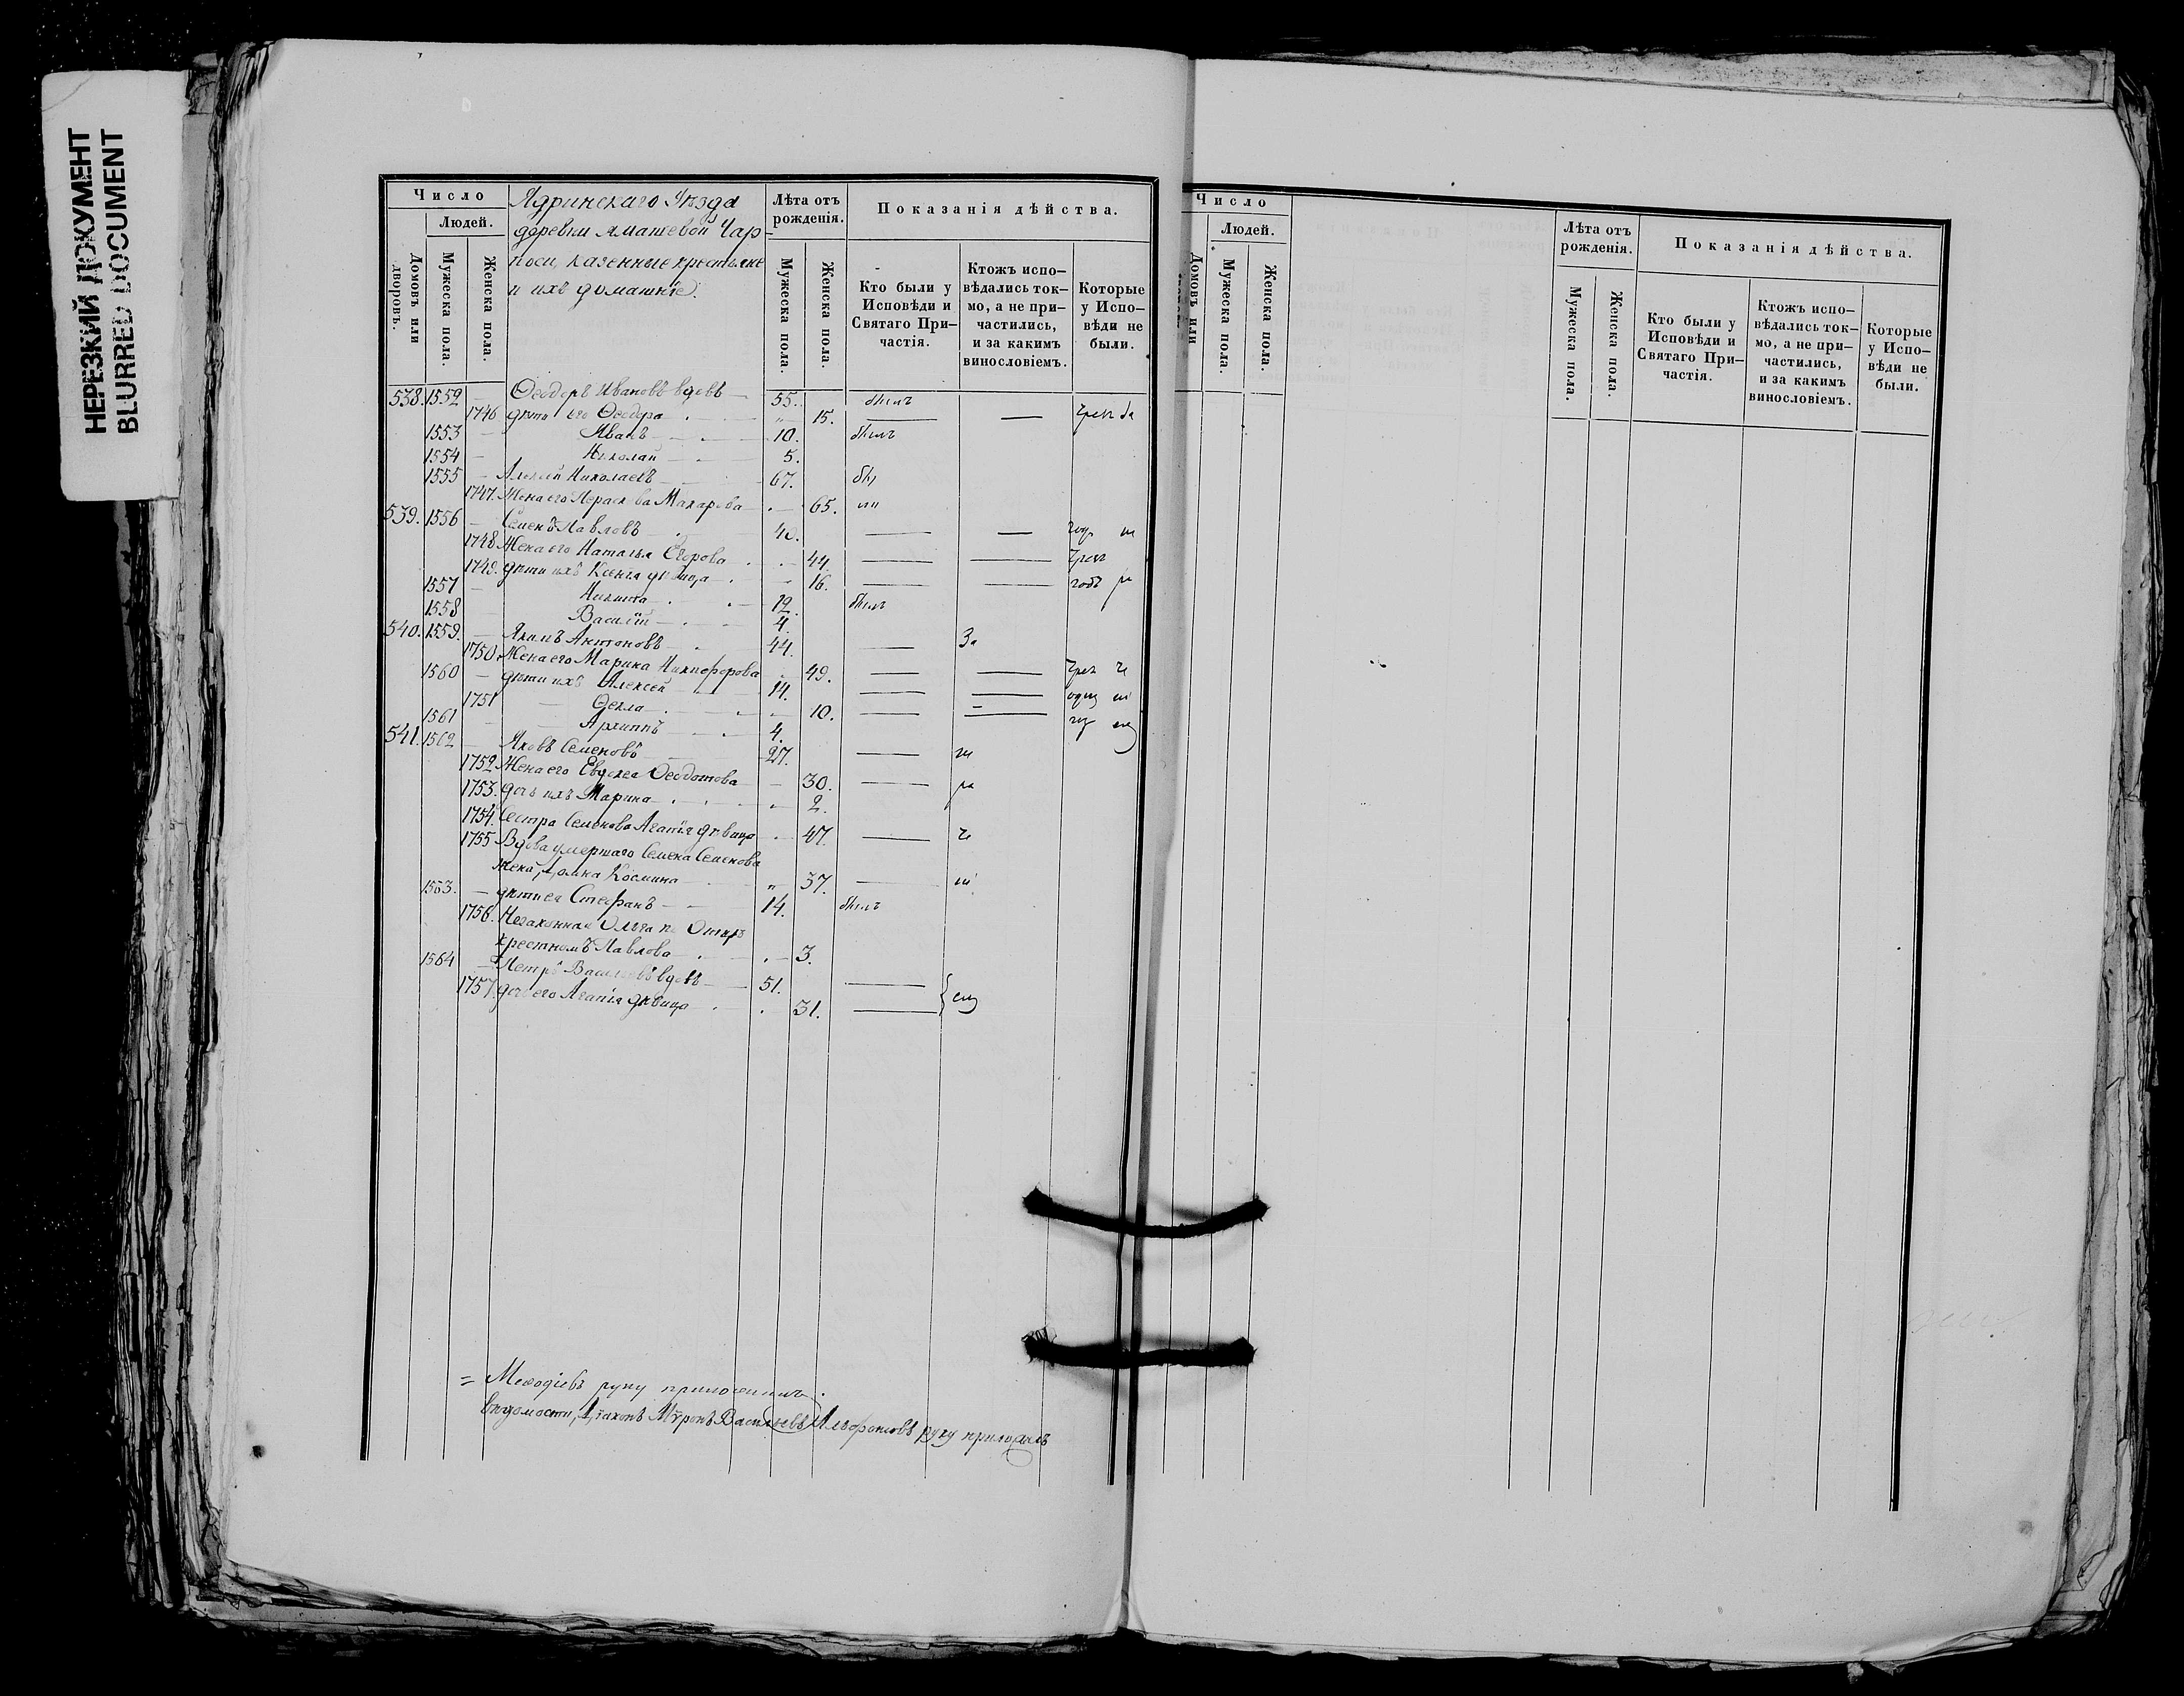 НЕРЕЗКИЙ ДОКУМЕНТ
BLURRED DOCUMENT
Число
Людей.
Домовъ или дворовъ.
Мужеска пола.
Женска пола.
Ядринскаго Уѣзда
деревни Яматевой Чар-
поси, казенные крестьяне
и ихъ домашніе.
Лѣта отъ рожденія.
Мужеска пола.
Женска пола.
Показанія дѣйства.
Кто были у Исповѣди и Святаго При-частія.
Ктожъ испо-вѣдались ток-мо, а не при-частились, и за какимъ винословіемъ.
Которые у Испо-вѣди не были.
538. 1552 — Ѳеодоръ Ивановъ вдовъ — 55. былъ
1746 дѣти его Ѳеодора 15.
1553 — Иванъ 10. былъ
1554 — Николай 5.
1555 — Алексей Николаевъ 67. бы
1747. Жена его Параскева Макарова 65.
539. 1556 — Семенъ Павловъ 40.
1748 Жена его Наталья Егорова 44.
1749. дѣти ихъ Ксенія дѣвица 16.
1557 — Никита 12. былъ
1558 Василій 4.
540. 1559. — Якимъ Антоновъ 44. За
1750. Жена его Марина Никифорова 49.
1560 — дѣти ихъ Алексей 14.
1751 Ѳекла 10.
1561 Архиппъ 4.
541. 1562 — Яковъ Семеновъ 27.
1752 Жена его Евдокеа Ѳеодотова 30.
1753. дочь ихъ Марина 2.
1754. Сестра Семенова Агапія дѣвица 47.
1755 Вдова умершаго Семена Семенова
жена, Домна Космина 37.
1563. — дѣти ея Стефанъ 14. былъ
1756. Незаконная Ольга по Отцѣ
крестномъ Павлова 3.
1564 — Петръ Васильевъ вдовъ 51.
1757. дочь его Агапія дѣвица 31.
= Меѳодіевъ руку приложилъ.
вѣдомости, Діаконъ Мѵронъ Васильевъ Альфонсовъ руку приложилъ
Число
Людей.
Домовъ или
Мужеска пола.
Женска пола.
Лѣта отъ рожденія.
Мужеска пола.
Женска пола.
Показанія дѣйства.
Кто были у Исповѣди и Святаго При-частія.
Ктожъ испо-вѣдались ток-мо, а не при-частились, и за какимъ винословіемъ.
Которые у Испо-вѣди не были.